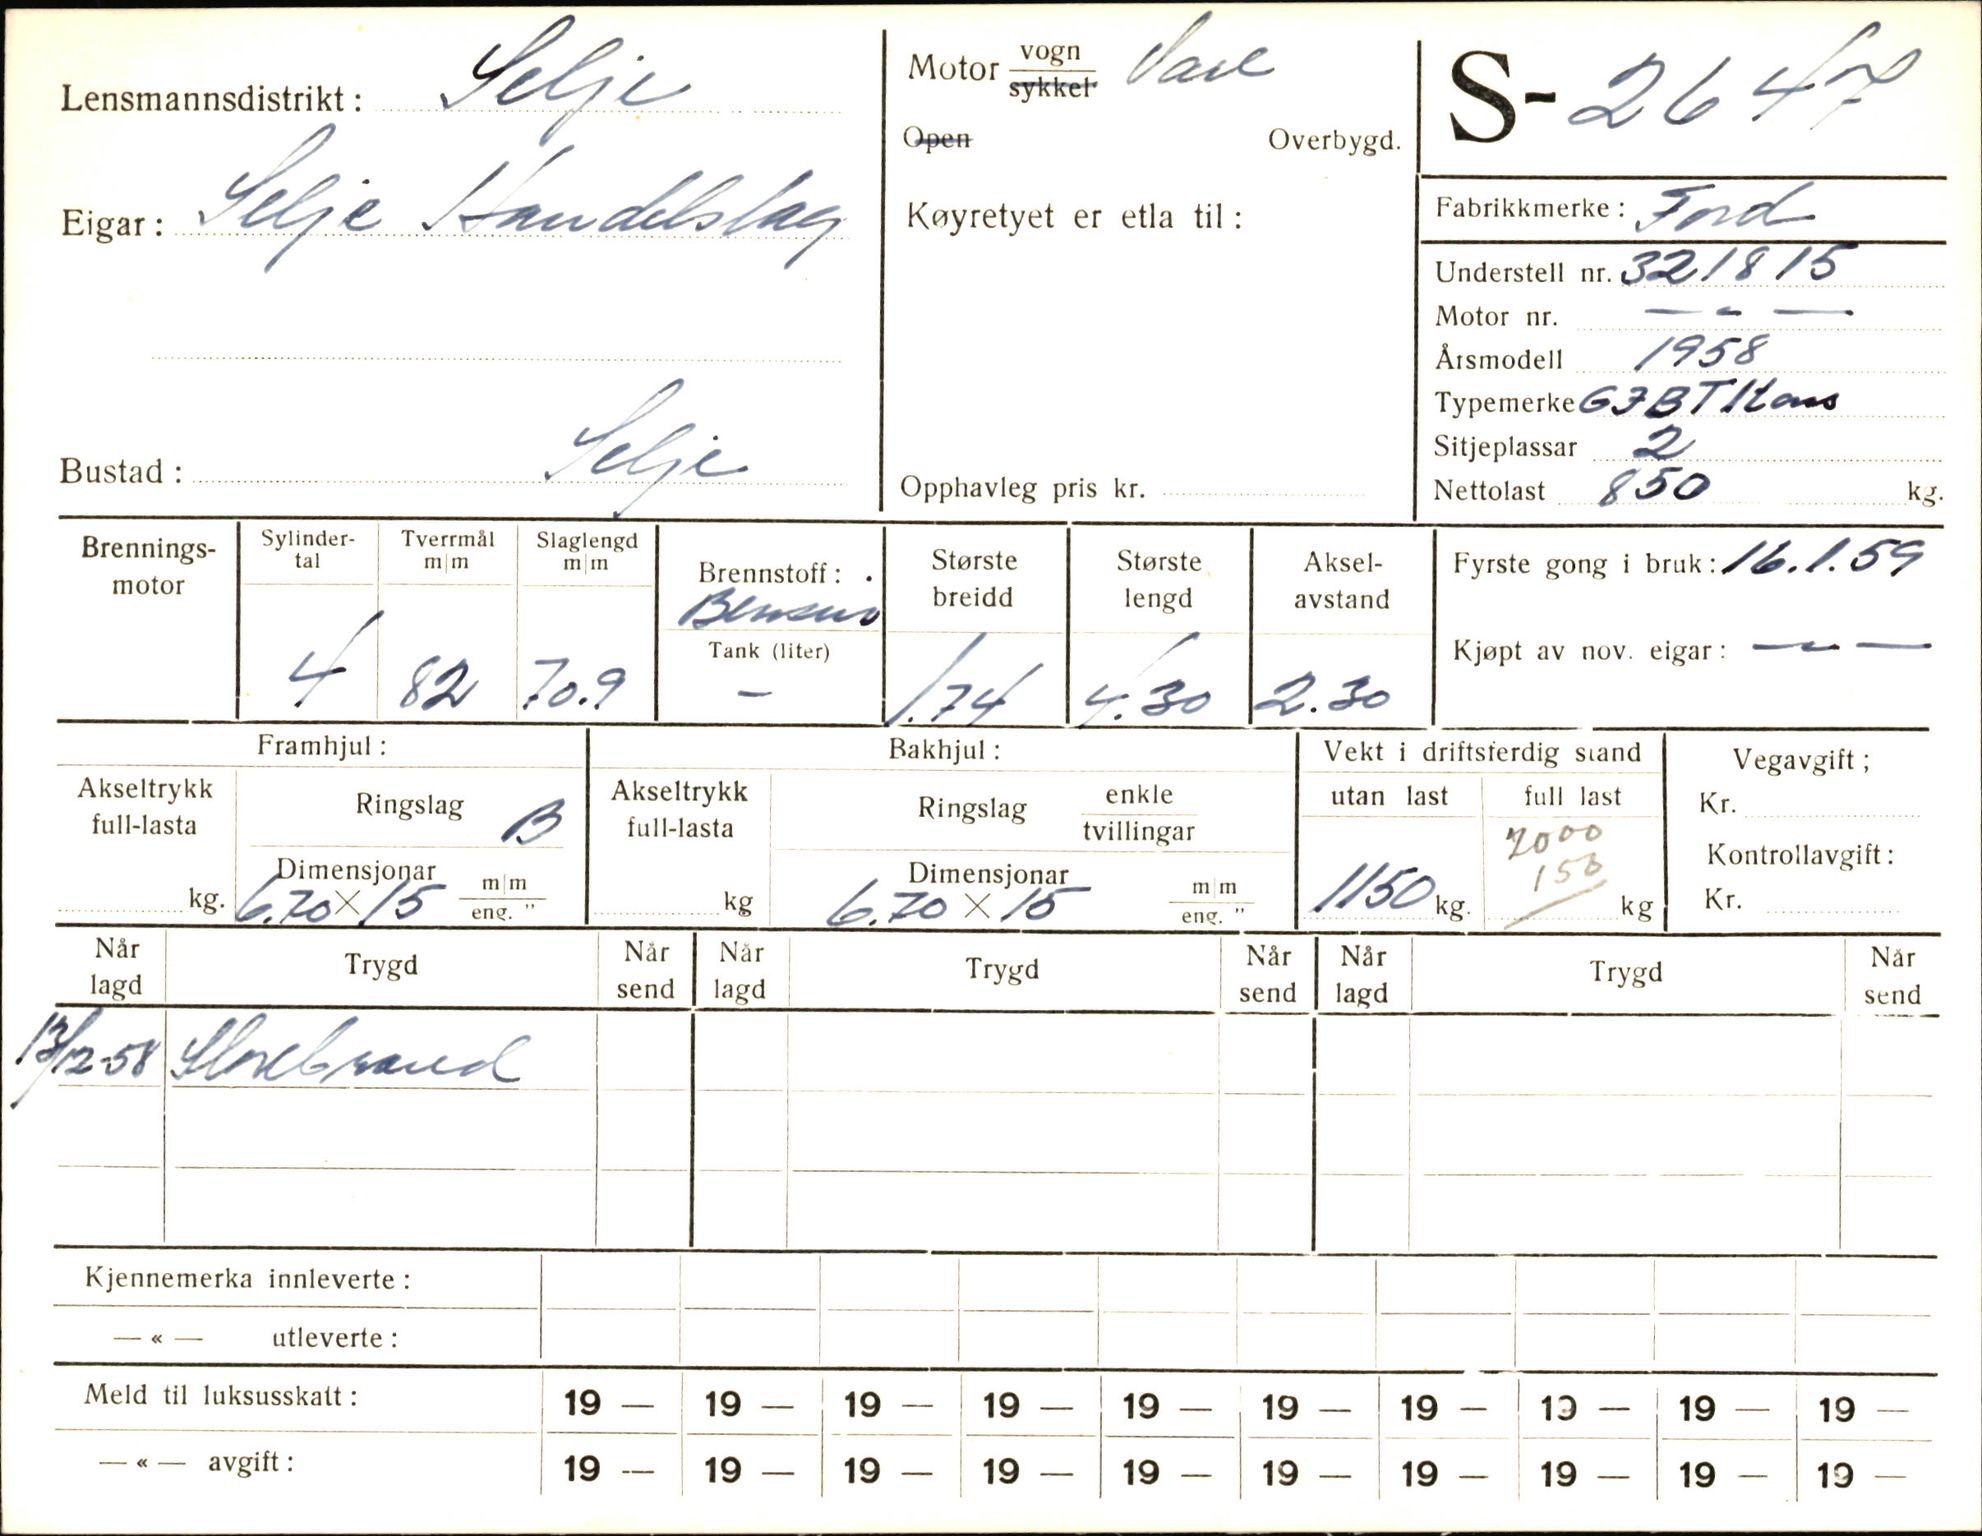 Lensmannsdistrikt: Selje
Eigar: Selje Handelslag
Bustad: Selje
Motor vogn Vare
sykkel
Open Overbygd.
Køyretyet er etla til:
Opphavleg pris kr.
S- 2647
Fabrikkmerke: Ford
Understell nr. 321815
Motor nr. — - —
Årsmodell 1958
Typemerke G3BT
Sitjeplassar 2
Nettolast 850 kg.
Brennings-
motor
Sylinder-
tal
4
Tverrmål
m/m
82
Slaglengd
m/m
70.9
Brennstoff:
Bensin
Tank (liter)
-
Største
breidd
1.74
Største
lengd
4.30
Aksel-
avstand
2.30
Fyrste gong i bruk: 16.1.59
Kjøpt av nov. eigar: — - —
Framhjul:
Akseltrykk
full-lasta
kg.
Ringslag B
Dimensjonar m/m
6.70 × 15 eng. "
Bakhjul:
Akseltrykk
full-lasta
kg
Ringslag enkle
tvillingar
Dimensjonar m/m
6.70 × 15 eng. "
Vekt i driftsferdig stand
utan last full last
2000
150
1150 kg. kg
Vegavgift;
Kr.
Kontrollavgift:
Kr.
Når
lagd Trygd Når
send Når
lagd Trygd Når
send Når
lagd Trygd Når
send
13/12-58 Storebrand
Kjennemerka innleverte:
— « — utleverte:
Meld til luksusskatt: 19 — 19 — 19 — 19 — 19 — 19 — 19 — 19 — 19 — 19 —
— « — avgift: 19 — 19 — 19 — 19 — 19 — 19 — 19 — 19 — 19 — 19 —